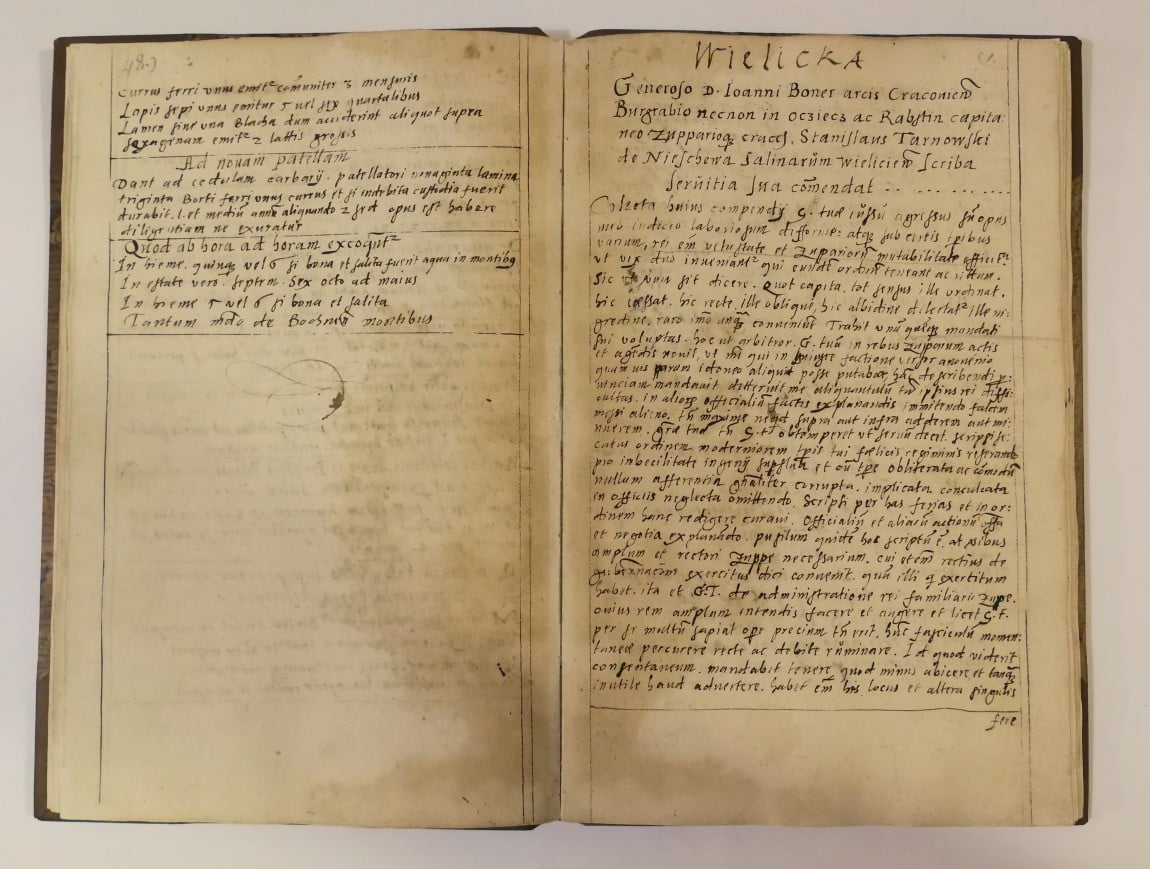 48.)
Currus ferri unus emit² comuniter 3 mensuris
Lapis sepi unus emitur 5 vel quartalibus
Lamen sine una Blacha dum acciderint aliquot supra
sexagenam emit² 2 lattis grossis
Ad novam patellam
Dant ad cedulam carbarij. patellatori nonaginta lamina
triginta Borti ferri unus currus et si indebita custodia fuerit
durabit. 1. et medium annum aliquando 2 sed opus est habere
diligentiam ne exuratur
Quod ab hora ad horam excoqunt²
In hieme. quinque vel 6 si bona et salita fuerit aqua in montibus
In estate vero. septem. Sex octo ad maius
In hieme 5 vel 6 si bona et salita
Tantum modo de Bochnen montibus
Wielicka
Generoso D. Ioanni Boner arcis Cracovien
Burgrabio necnon in Ocziecz ac Rabstin capita:
neo Zupparioq cracc, Stanislaus Tarnowski
de Nieschewa Salinarum wielicien Scriba
servitia sua comendat
Collecta huius compendij G. tuae iussu agressus su opus
meo iudicio laboriosum difforme: atque sub certis tpibus
varium, rei em vetustate et Zuppariorum mutabilitate officit²
ut vix duo inveniant² qui eundem ordinem teneant ac ritum.
Sic ut vera sit dicere. Quot capita, tot sensus ille ordinat,
hic cassat. hic recte, ille obliqui, hic albidine delectat² ille ni-
gredine. raro imo unq convenint Trahit unu quemque mandati
sui voluptas. hoc ut arbitror. G. tua in rebus zupparum actis
et agendis novit, ut mi qui in factione versor anonimo
quamvis parum idoneo aliquid posse putabat, hac describendi p:
vinciam mandavit deterruit me aliquantulu tam ipsius rei diffi:
cultas. in alios officialiu factis explanandis immitendo falcem
messi alieno. tu maxime neqd supra aut infra adderem aut mi-
nuerem. grae tuae tn G.T. obtemperet ut servu decet. scripsi se:
catus ordinem moderniorem tpis tui foelicis regiminis reserando
pro inbecilitate ingenij supplatu et ou tpe obliterata ac comodu
nullum afferentia ghaliter corrupta. implicata, conculcata
in officiis neglecta omittendo. Scripsi per has ferias et in or:
dinem hanc redigere curavi. Officialiu et aliaru actionu offa
et negotia explanando. pusilum quide hoc scriptu e, at usibus
amplum et rectori Zuppe necessarium. cui etem rectius de
gubernacom exercitus dici convenit. qua illi q exercitum
habet. ita et G.T. de administratione rei familiaris Zuppe.
cuius rem amplum intendis facere et augere et licet G.T.
per se multu sapiat ope precium tn erit. hunc fasciculu momen:
taneae percurere recte ac debite ruminare. Id quod viderit
consentaneum. mandabit tenere, quod minus abicere et tanq
inutile haud advertere. habet em his locus et altera singulis
fere